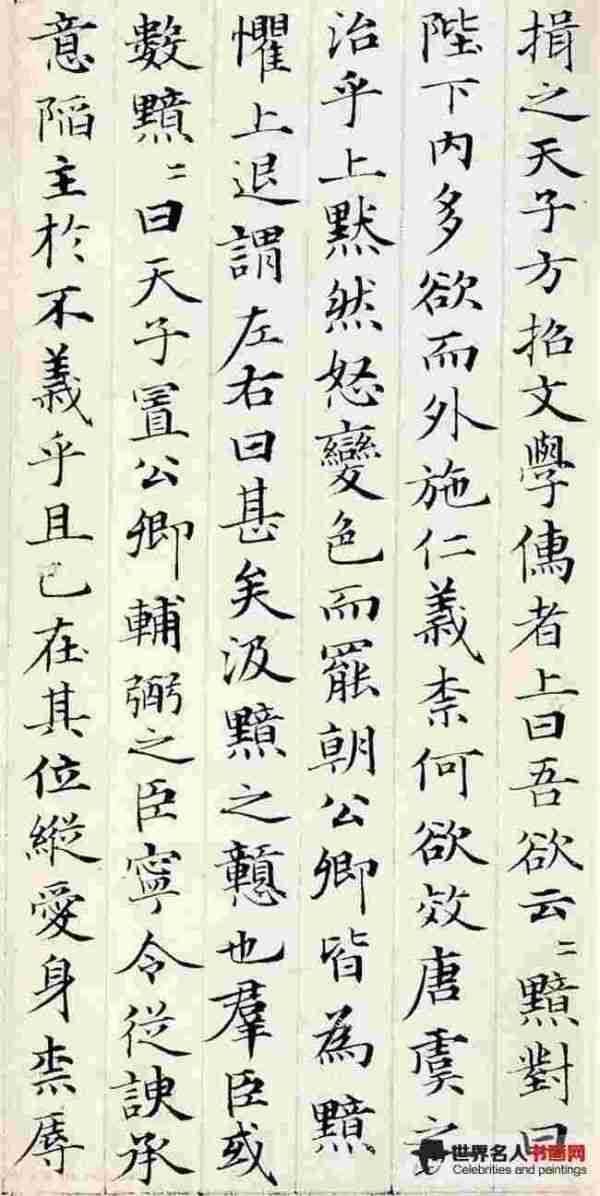 揖之天子方招文學儒者上曰吾欲云〻黯對曰
陛下內多欲而外施仁義柰何欲效唐虞之
治乎上默然怒變色而罷朝公卿皆為黯
懼上退謂左右曰甚矣汲黯之戇也羣臣或
數黯〻曰天子置公卿輔弼之臣寧令從諛承
意陷主於不義乎且已在其位縱愛身柰辱
世界名人书画网
Celebrities and paintings